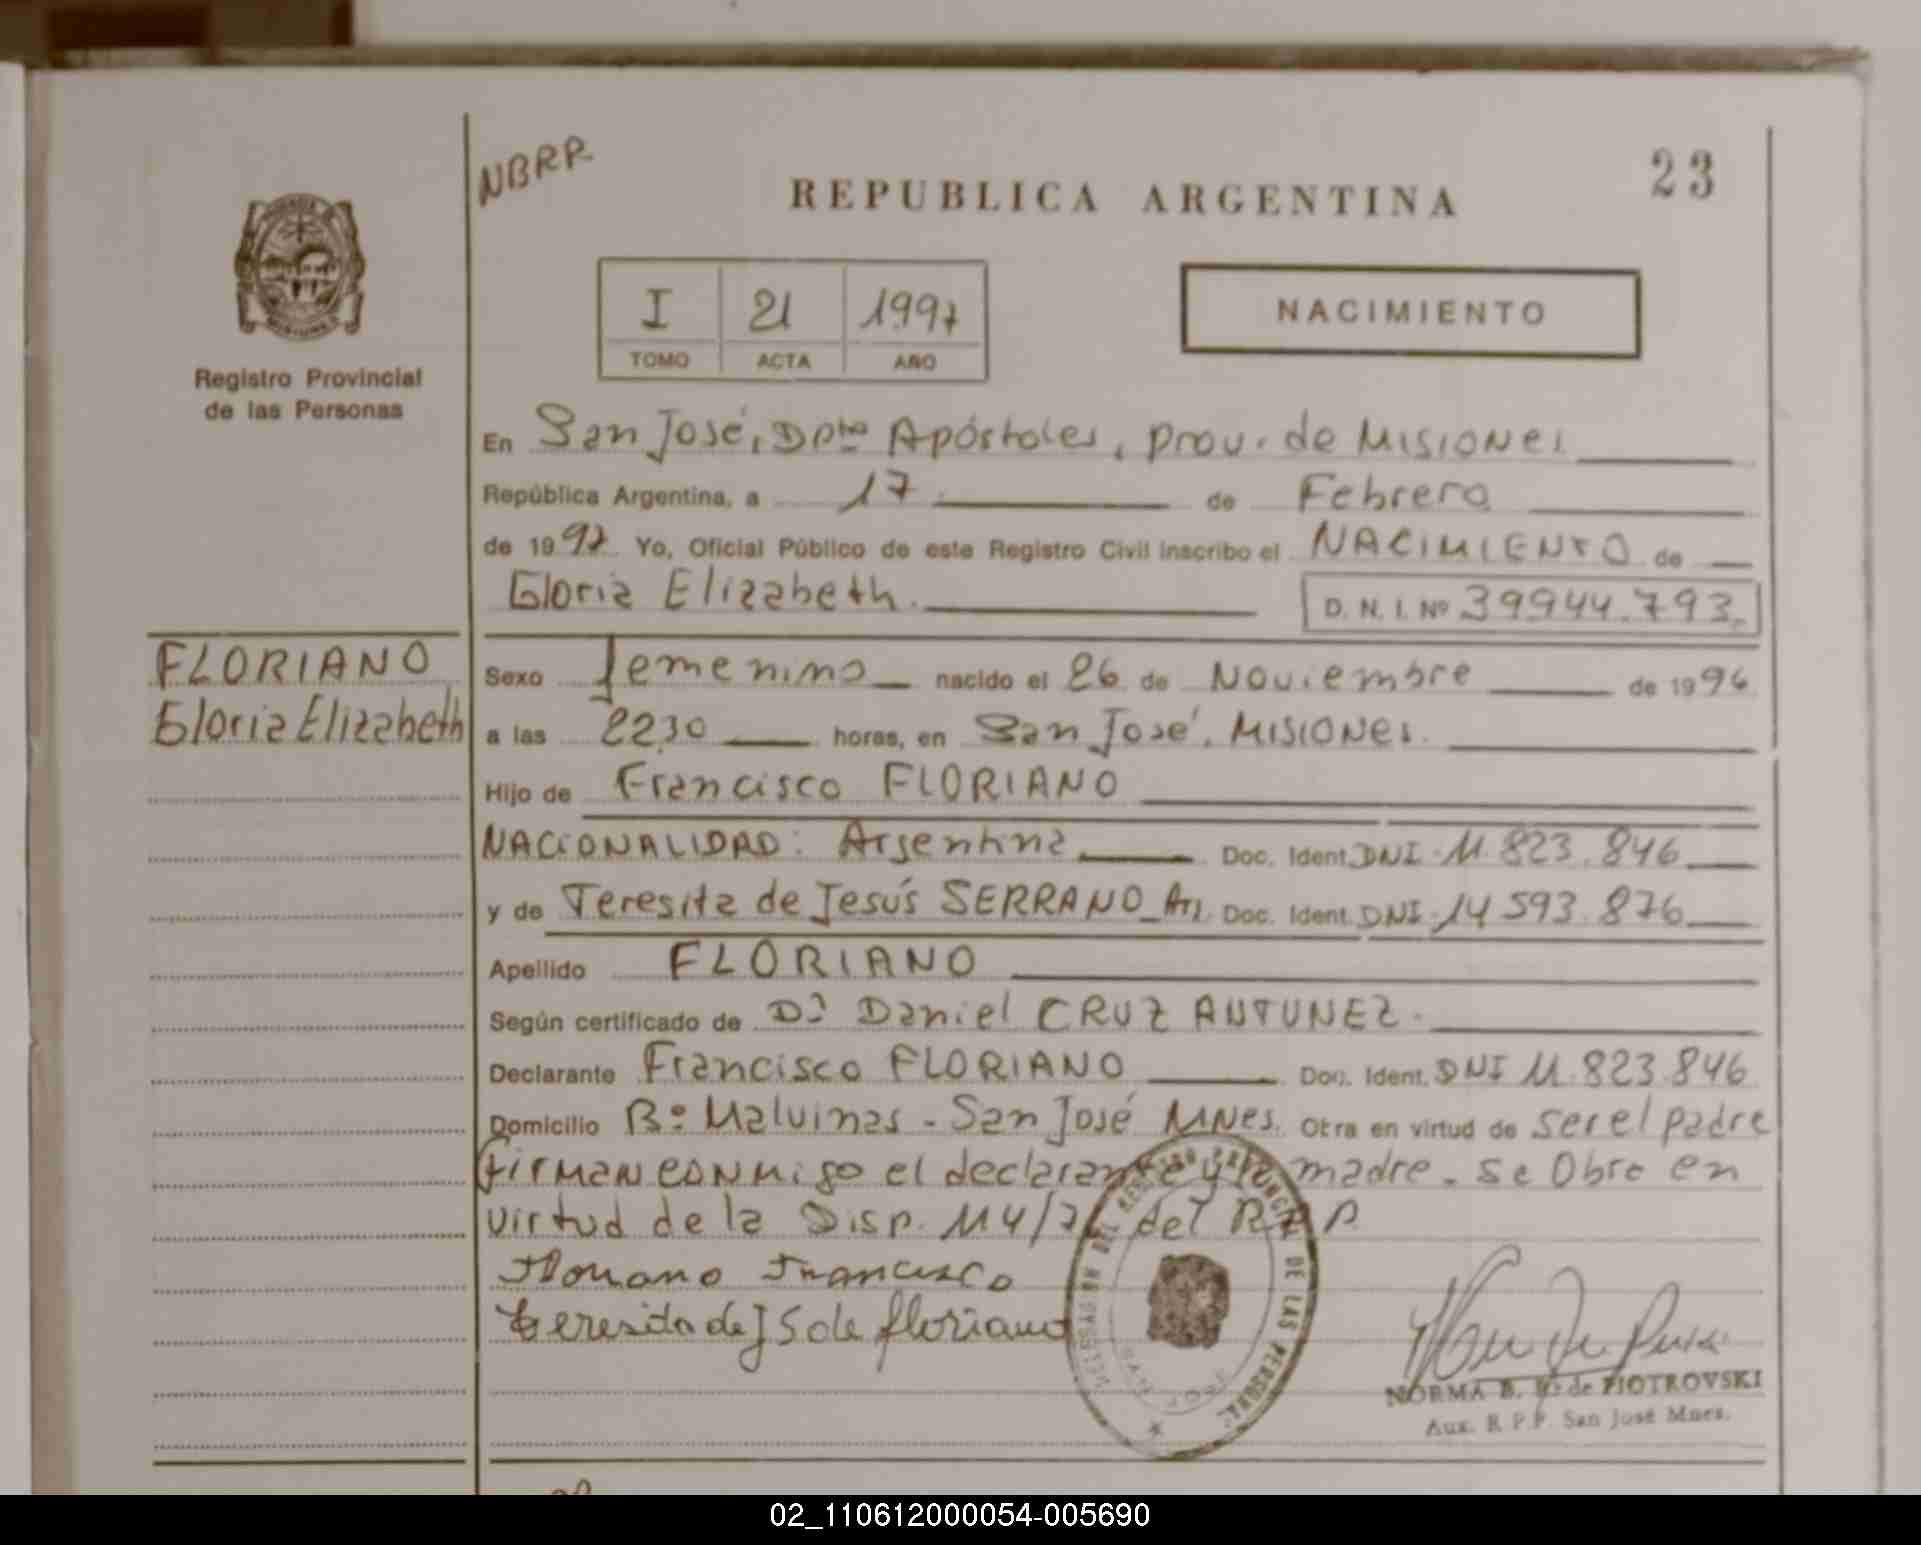 NBRP
23
REPUBLICA ARGENTINA
Registro Provincial
de las Personas
I 21 1997
TOMO ACTA AÑO
NACIMIENTO
En San José, Dpto Apóstoles, Prov. de Misiones
República Argentina, a 17 de Febrero
de 1997 Yo, Oficial Público de este Registro Civil inscribo el NACIMIENTO de
Gloria Elizabeth. D. N. I. Nº 39944.793.
FLORIANO
Gloria Elizabeth
Sexo femenino nacido el 26 de Noviembre de 1996
a las 22,30 horas, en San José, Misiones.
Hijo de Francisco FLORIANO
NACIONALIDAD: Argentina Doc. Ident. DNI. 11.823.846
y de Teresita de Jesús SERRANO Doc. Ident. DNI. 14593.876
Apellido FLORIANO
Según certificado de Daniel CRUZ ANTUNEZ.
Declarante Francisco FLORIANO Doc. Ident. DNI 11.823.846
Domicilio Bº Malvinas - San José Mnes. Otra en virtud de ser el padre
Firman conmigo el declarante y la madre. Se Obre en
virtud de la Disp. 114/ del R.P.P.
Floriano Francisco
teresita de J S de floriano
DELEGACION DEL REGISTRO PROVINCIAL DE LAS PERSONAS
NORMA B. de PIOTROVSKI
Aux. R.P.P. San José Mnes.
02_110612000054-005690